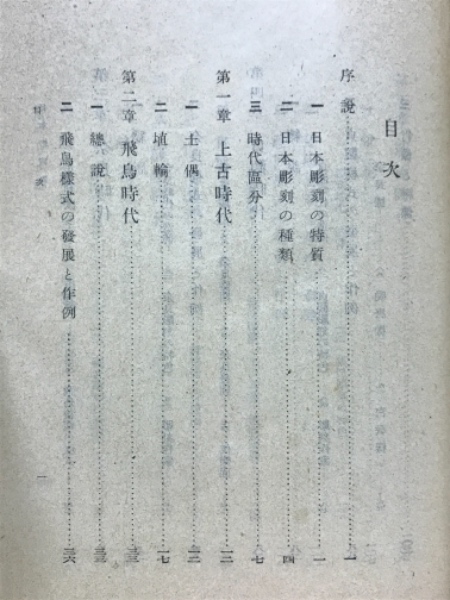 目次
序說……一
一 日本彫刻の特質……一
二 日本彫刻の種類……四
三 時代區分……七
第一章 上古時代……一二
一 土偶……一二
二 埴輪……一七
第二章 飛鳥時代……
一 總說……
二 飛鳥樣式の發展と作例……
一